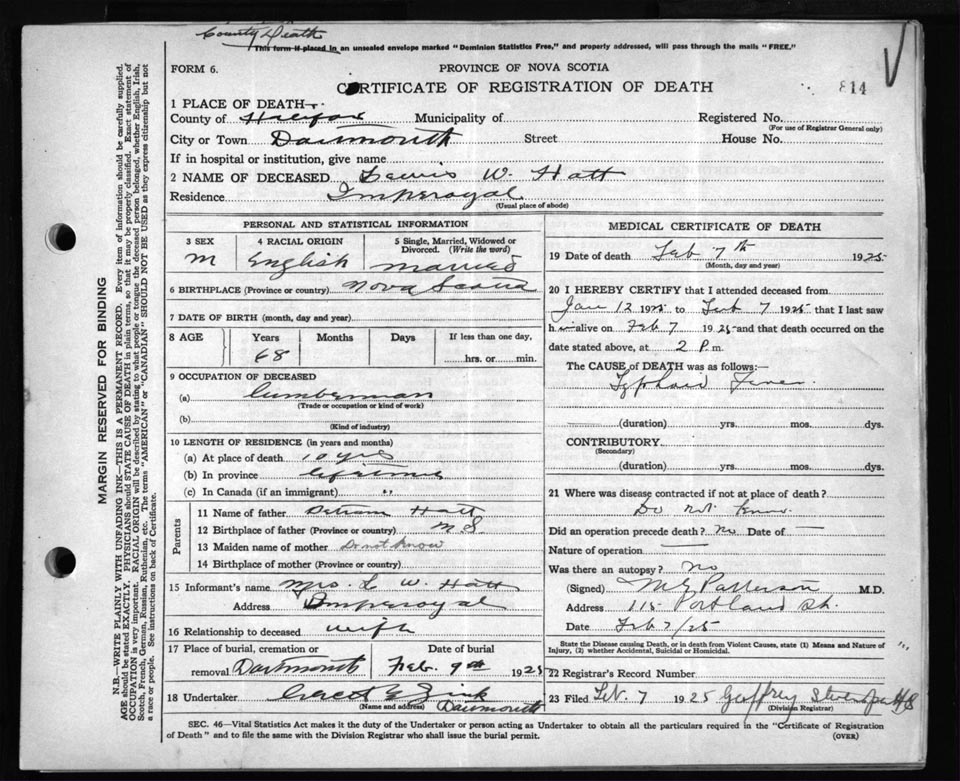 County Death
This form if placed in an unsealed envelope marked "Dominion Statistics Free," and properly addressed, will pass through the mails "FREE."
FORM 6.
PROVINCE OF NOVA SCOTIA
CERTIFICATE OF REGISTRATION OF DEATH
814
1 PLACE OF DEATH—
County of Halifax Municipality of Registered No.
(For use of Registrar General only)
City or Town Dartmouth Street House No.
If in hospital or institution, give name
2 NAME OF DECEASED Lewis W. Hatt
Residence Imperoyal
(Usual place of abode)
PERSONAL AND STATISTICAL INFORMATION
3 SEX 4 RACIAL ORIGIN 5 Single, Married, Widowed or Divorced. (Write the word)
M English Married
6 BIRTHPLACE (Province or country) Nova Scotia
7 DATE OF BIRTH (month, day and year)
8 AGE Years Months Days If less than one day,
68 hrs. or min.
9 OCCUPATION OF DECEASED
(a) Lumberman
(Trade or occupation or kind of work)
(b)
(Kind of industry)
10 LENGTH OF RESIDENCE (in years and months)
(a) At place of death 10 yrs
(b) In province lifetime
(c) In Canada (if an immigrant) "
Parents
11 Name of father Hatt
12 Birthplace of father (Province or country) N S.
13 Maiden name of mother Do not know
14 Birthplace of mother (Province or country)
15 Informant's name Mrs. L W. Hatt
Address Imperoyal
16 Relationship to deceased wife
17 Place of burial, cremation or removal Dartmouth Date of burial Feb. 9th 1925
18 Undertaker Zink
(Name and address) Dartmouth
MEDICAL CERTIFICATE OF DEATH
19 Date of death Feb 7th 1925
(Month, day and year)
20 I HEREBY CERTIFY that I attended deceased from
Jan 12 1925 to Feb 7 1925 that I last saw
him alive on Feb 7 1925 and that death occurred on the
date stated above, at 2 P.m.
The CAUSE of DEATH was as follows:
Typhoid Fever.
(duration) yrs. mos. dys.
CONTRIBUTORY
(Secondary)
(duration) yrs. mos. dys.
21 Where was disease contracted if not at place of death?
Do not know.
Did an operation precede death? No Date of —
Nature of operation —
Was there an autopsy? No
(Signed) Patterson M.D.
Address 115 Portland St.
Date Feb 7/25
State the Disease causing Death, or in death from Violent Causes, state (1) Means and Nature of Injury, (2) whether Accidental, Suicidal or Homicidal.
22 Registrar's Record Number
23 Filed Feb. 7 1925 Geoffrey
(Division Registrar)
SEC. 46—Vital Statistics Act makes it the duty of the Undertaker or person acting as Undertaker to obtain all the particulars required in the "Certificate of Registration
of Death" and to file the same with the Division Registrar who shall issue the burial permit.
(OVER)
MARGIN RESERVED FOR BINDING
N.B.—WRITE PLAINLY WITH UNFADING INK—THIS IS A PERMANENT RECORD. Every item of information should be carefully supplied.
AGE should be stated EXACTLY. PHYSICIANS should STATE CAUSE OF DEATH in plain terms, so that it may be properly classified. Exact statement of
OCCUPATION is very important. RACIAL ORIGIN will be described by stating to what people or tongue the deceased person belonged, whether English, Irish,
Scotch, French, German, Russian, Ruthenian, etc. The terms "AMERICAN" or "CANADIAN" SHOULD NOT BE USED as they express citizenship but not
a race or people. See instructions on back of Certificate.